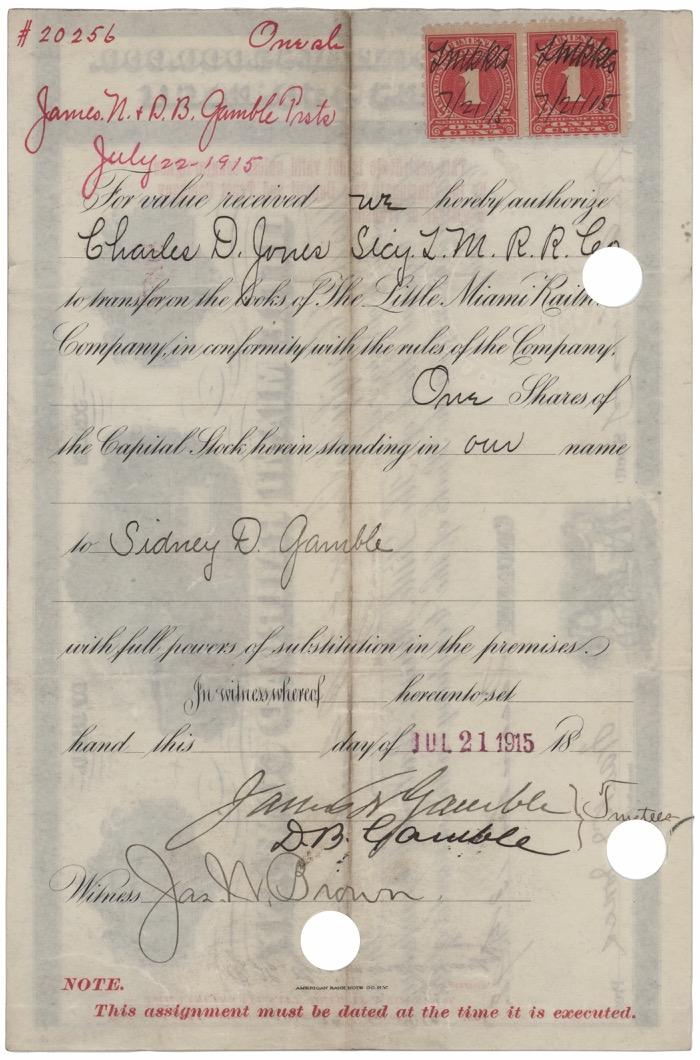 #20256 One sh
James. N. & D.B. Gamble Trste
July 22-1915
DOCUMENTARY
1
ONE CENT
7/21/15
1
ONE CENT
7/21/15
For value received we hereby authorize
Charles D. Jones Secy. L. M. R. R. Co
to transfer on the books of The Little Miami Railr
Company, in conformity with the rules of the Company.
One Shares of
the Capital Stock herein standing in our name
to Sidney D. Gamble
with full powers of substitution in the premises.
In witness whereof hereunto set
hand this day of JUL 21 1915 18
James N Gamble } Trustees
D.B. Gamble
Witness Jas. W. Brown.
AMERICAN BANK NOTE CO. N.Y.
NOTE.
This assignment must be dated at the time it is executed.